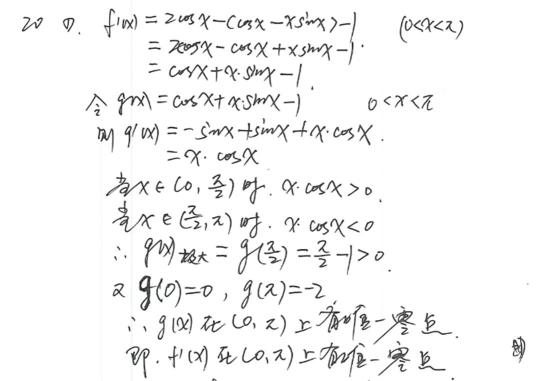 20 ①. f'(x) = 2cosx-(cosx-xsinx)-1 (0<x<π)
= 2cosx-cosx+xsinx-1.
= cosx+x·sinx-1
令 g(x)=cosx+x·sinx-1 0<x<π
则 g'(x)=-sinx+sinx+x·cosx.
= x·cosx
当x∈(0, π/2)时. x·cosx>0.
当x∈(π/2, π)时. x·cosx<0
∴ g(x)极大 = g(π/2) = π/2-1>0.
又 g(0)=0, g(π)=-2
∴ g(x)在(0, π)上有唯一零点.
即. f'(x)在(0, π)上有唯一零点.